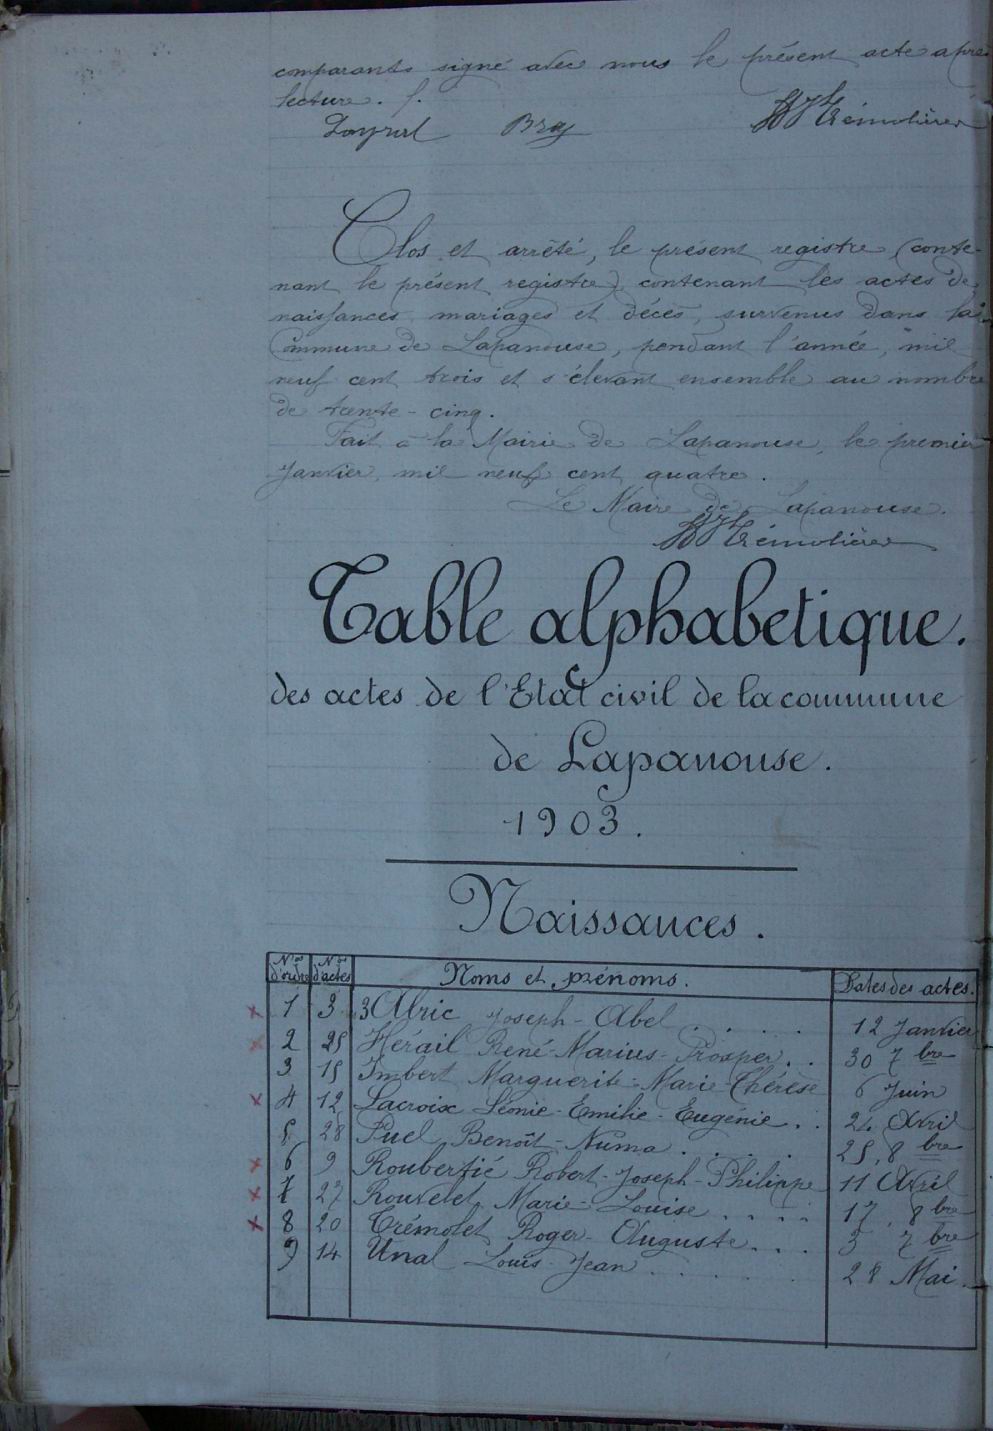 comparants signé avec nous le présent acte après
lecture. /.
Layrul Bray Trémolières
Clos et arrêté, le présent registre (conte-
nant le présent registre) contenant les actes de
naissances, mariages et décès, survenus dans la
Commune de Lapanouse, pendant l'année, mil
neuf cent trois et s'élevant ensemble au nombre
de trente-cinq.
Fait à la Mairie de Lapanouse, le premier
Janvier, mil neuf cent quatre.
Le Maire de Lapanouse.
Trémolières
Table alphabetique.
des actes de l'Etat civil de la commune
de Lapanouse.
1903.
Naissances.
Nos d'ordre Nos d'actes Noms et prénoms. Dates des actes.
x 1 3 Alric Joseph-Abel . . . . 12 Janvier
x 2 25 Hérail René-Marius-Prosper . . 30 7bre
3 15 Imbert Marguerite-Marie-Thérèse 6 Juin
x 4 12 Lacroix Léonie-Emilie-Eugénie . . 24 Avril
5 28 Puel Benoît-Numa . . . . 25, 8bre
x 6 9 Roubertié Robert-Joseph-Philippe 11 Avril
x 7 27 Rouvelet Marie-Louise . . . . 17, 8bre
x 8 20 Trémolet Roger-Auguste . . . 5 7bre
9 14 Unal Louis-Jean . . . . . 28 Mai.